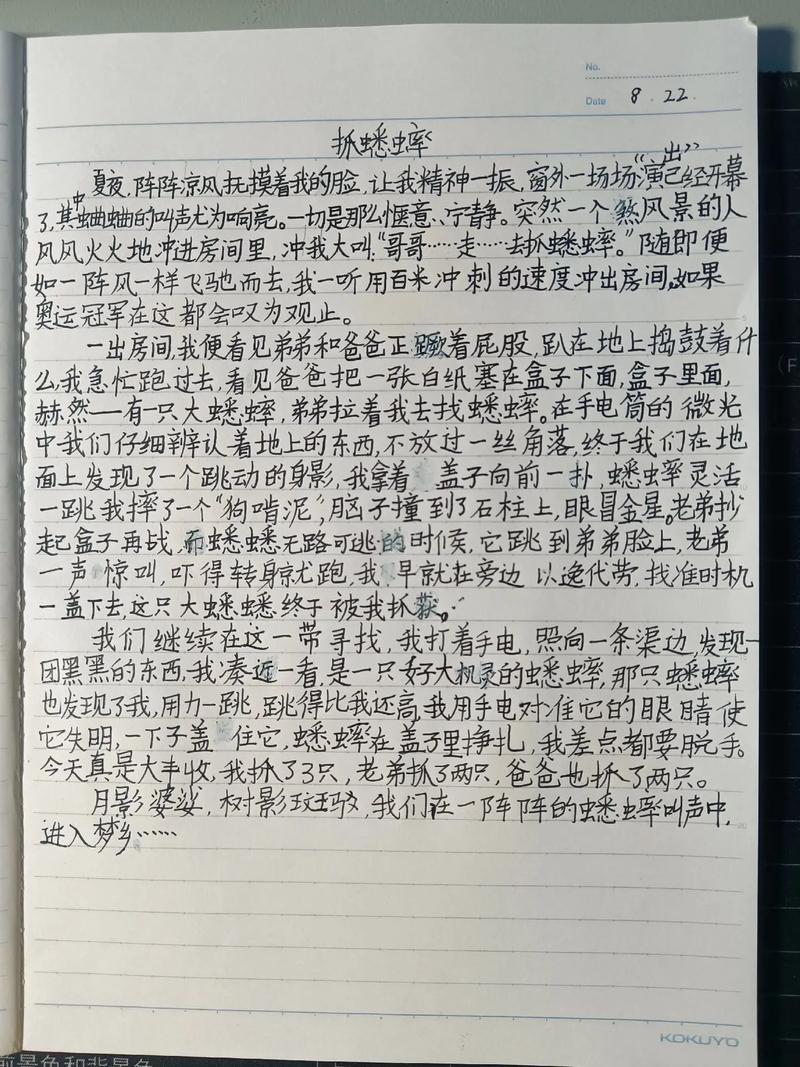 No.
Date 8.22.
抓蟋蟀
夏夜,阵阵凉风抚摸着我的脸,让我精神一振,窗外一场场“演出”已经开幕
了,其中蛐蛐的叫声尤为响亮。一切是那么惬意、宁静。突然一个煞风景的人
风风火火地冲进房间里,冲我大叫:“哥哥……走……去抓蟋蟀。”随即便
如一阵风一样飞驰而去,我一听用百米冲刺的速度冲出房间,如果
奥运冠军在这都会叹为观止。
一出房间,我便看见弟弟和爸爸正蹶着屁股,趴在地上捣鼓着什
么,我急忙跑过去,看见爸爸把一张白纸塞在盒子下面,盒子里面,
赫然——有一只大蟋蟀,弟弟拉着我去找蟋蟀。在手电筒的微光
中我们仔细辨认着地上的东西,不放过一丝角落,终于我们在地
面上发现了一个跳动的身影,我拿着盖子向前一扑,蟋蟀灵活
一跳我摔了一个“狗啃泥”,脑子撞到了石柱上,眼冒金星。老弟抄
起盒子再战,而蟋蟋无路可逃的时候,它跳到弟弟脸上,老弟
一声惊叫,吓得转身就跑,我早就在旁边以逸代劳,找准时机
一盖下去,这只大蟋蟋终于被我抓获。
我们继续在这一带寻找,我打着手电,照向一条渠边,发现一
团黑黑的东西,我凑近一看,是一只好大机灵的蟋蟀,那只蟋蟀
也发现了我,用力一跳,跳得比我还高,我用手电对准它的眼睛使
它失明,一下子盖住它,蟋蟀在盖子里挣扎,我差点都要脱手。
今天真是大丰收,我抓了3只,老弟抓了两只,爸爸也抓了两只。
月影婆娑,树影玟,我们在一阵阵的蟋蟀叫声中,
进入梦乡……
KOKUYO
前景色和背景色